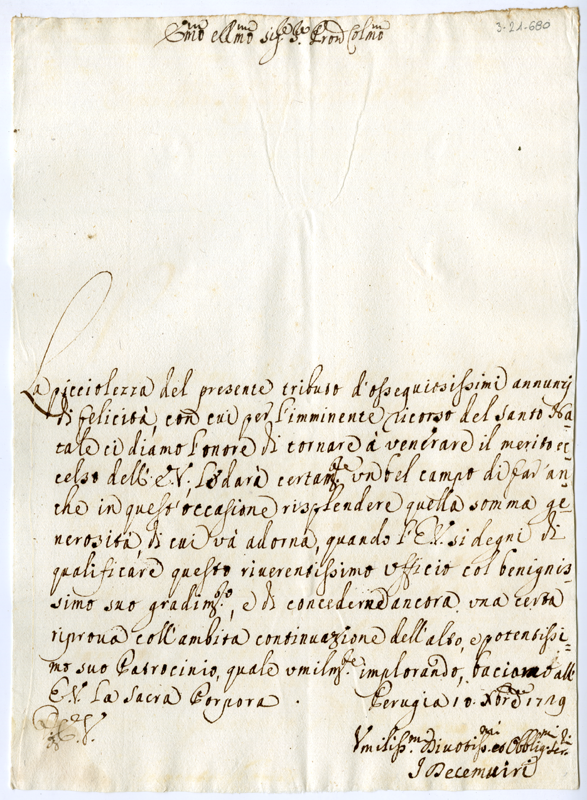 3-21-680
Em̃o e Rm̃o Sig.r Sig.r Pron Colmo
La picciolezza del presente tributo d'ossequiosissimi annunzj
di felicità con cui per l'imminente ricorso del santo Na=
tale ci diamo l'onore di tornare à venerare il merito ec=
celso dell'E.V., Le darà certam.te un bel campo di far an=
che in quest'occasione risplendere quella somma ge=
nerosità, di cui và adorna, quando l'E.V. si degni di
qualificare questo riverentissimo ufficio col benignis=
simo suo gradim.to, e di concederne ancora una certa
riprova coll'ambita continuazione dell'alto, e potentissi=
mo suo Patrocinio, quale umilm.te implorando, baciamo all'
E.V. La Sacra Porpora.
Perugia 10 Xbre 1729
Umiliss.mi Divotiss.mi ed Obblig.mi Ser.
I Decemviri